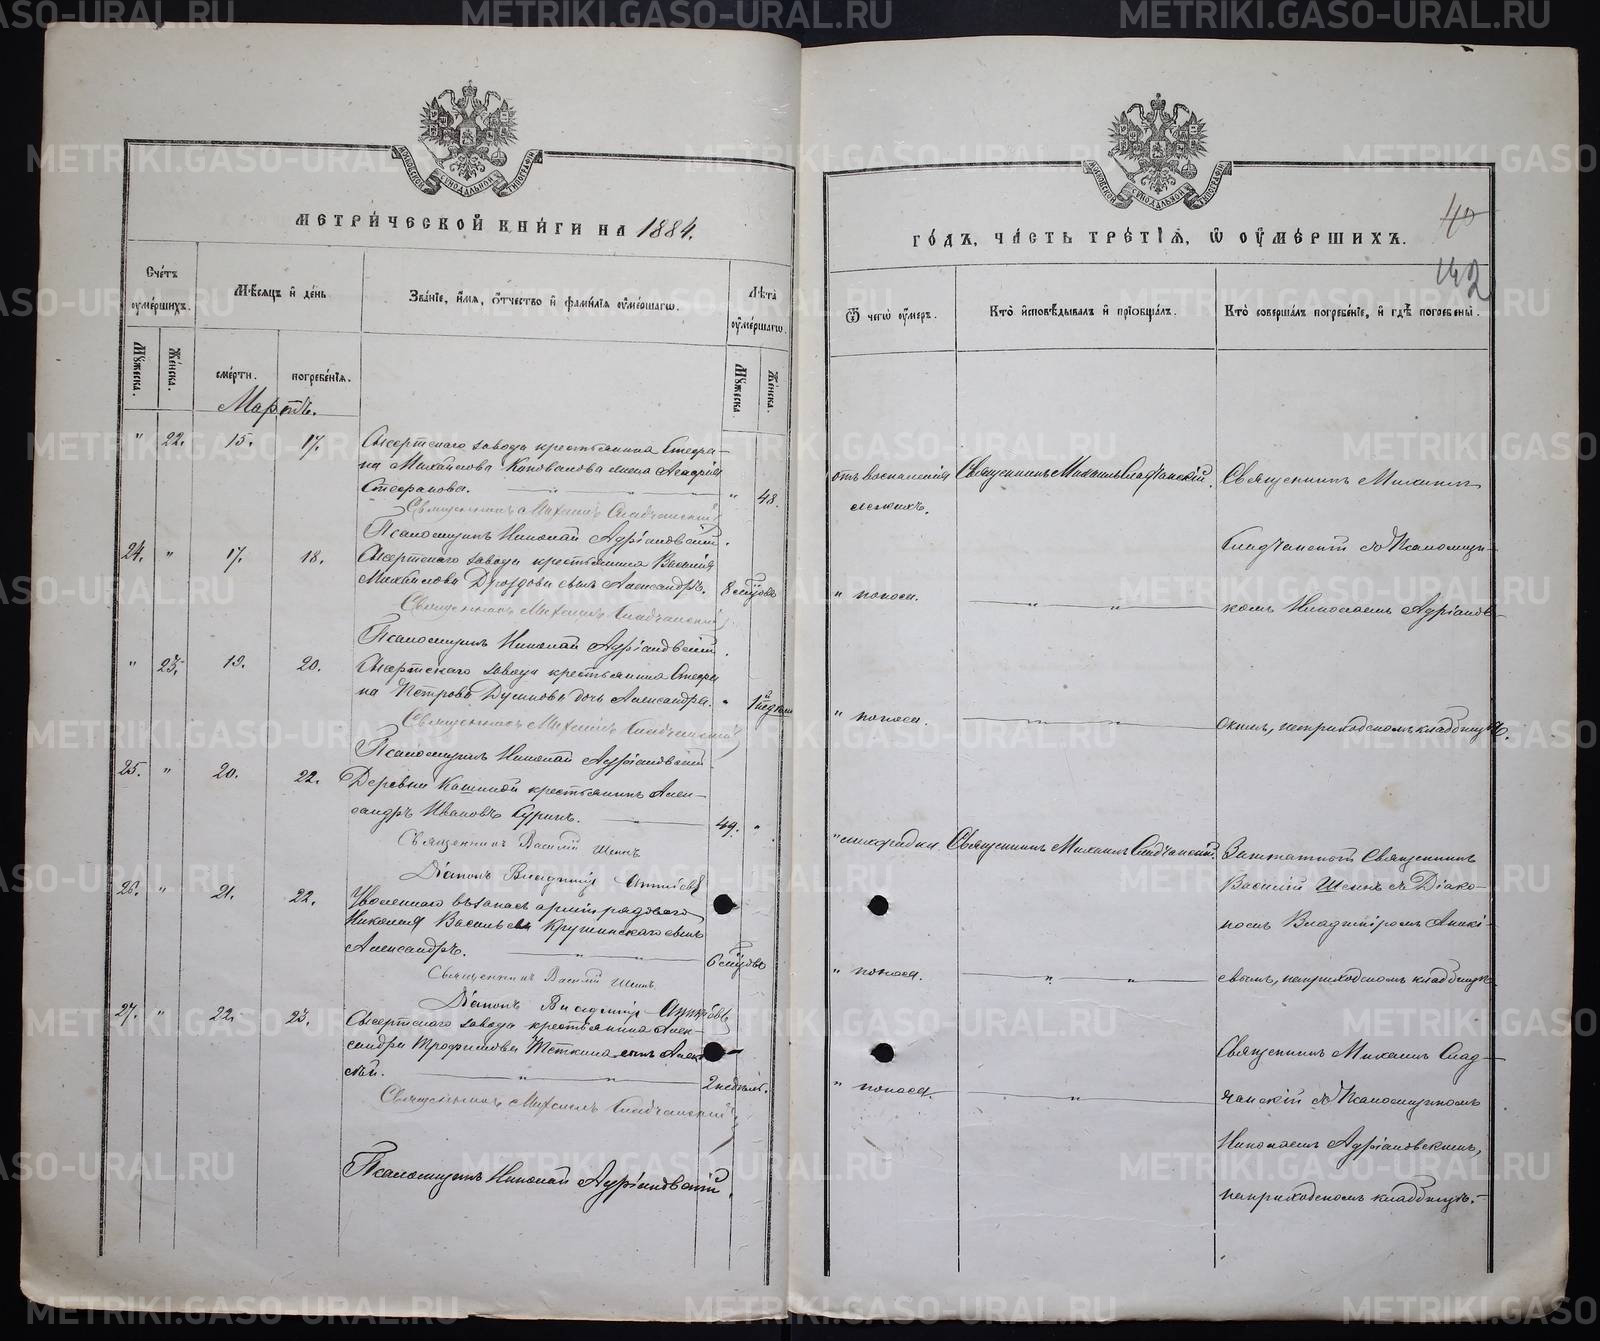 МЕТРИЧЕСКОЙ КНИГИ НА 1884.
Счетъ умершихъ.
Мужеска.
Женска.
Мѣсяцъ и день
смерти.
погребенія.
Званіе, имя, отчество и фамилія умершаго.
Лѣта умершаго.
Мужеска.
Женска.
Мартъ.
" 22. 15. 17. Сысертскаго завода крестьянина Стефа-
на Михайлова Коновалова жена
Стефанова. " " " " 43.
Священникъ Михаилъ Сладчанскій
Псаломщикъ Николай Адріановскій.
24. " 17. 18. Сысертскаго завода крестьянина Василія
Михайлова Дроздова сынъ Александръ. 8 мѣсяцовъ
Священникъ Михаилъ Сладчанскій
Псаломщикъ Николай Адріановскій.
" 23. 19. 20. Сысертскаго завода крестьянина Стефа
на Петрова дочь Александра. "
Священникъ Михаилъ Сладчанскій
Псаломщикъ Николай Адріановскій
25. " 20. 22. Деревни Кашиной крестьянинъ Алек-
сандръ Ивановъ Суринъ. 49. "
Священникъ Василій
Діаконъ Владиміръ
26. " 21. 22. Уволеннаго въ запасъ арміи рядового
Николая Васильева сынъ
Александръ. " " 6 мѣсяцовъ
Священникъ Василій
Діаконъ Владиміръ
27. " 22. 23. Сысертскаго завода крестьянина Алек-
сандра Трофимова Теткина сынъ Алек
сѣй. " " 2 недѣль.
Священникъ Михаилъ Сладчанскій
Псаломщикъ Николай Адріановскій.
ГОДЪ, ЧАСТЬ ТРЕТІЯ, Ѿ ОУМЕРШИХЪ.
40
42
Ѿ чего умеръ.
Кто исповѣдывалъ и пріобщалъ.
Кто совершалъ погребеніе, и гдѣ погребены.
отъ воспаленія Священникъ Михаилъ Сладчанскій. Священникъ Михаилъ
легкихъ.
Сладчанскій съ Псаломщи-
" поноса. " " комъ Николаемъ Адріановс-
" поноса. " " скимъ, на приходскомъ кладбищѣ.
" лихорадки Священникъ Михаилъ Сладчанскій. Заштатный Священникъ
Василій съ Діако-
номъ Владиміромъ Аники-
" поноса. " " евымъ, на приходскомъ кладбищѣ.
Священникъ Михаилъ Слад-
" поноса. " чанскій съ Псаломщикомъ
Николаемъ Адріановскимъ,
на приходскомъ кладбищѣ.
METRIKI.GASO-URAL.RU